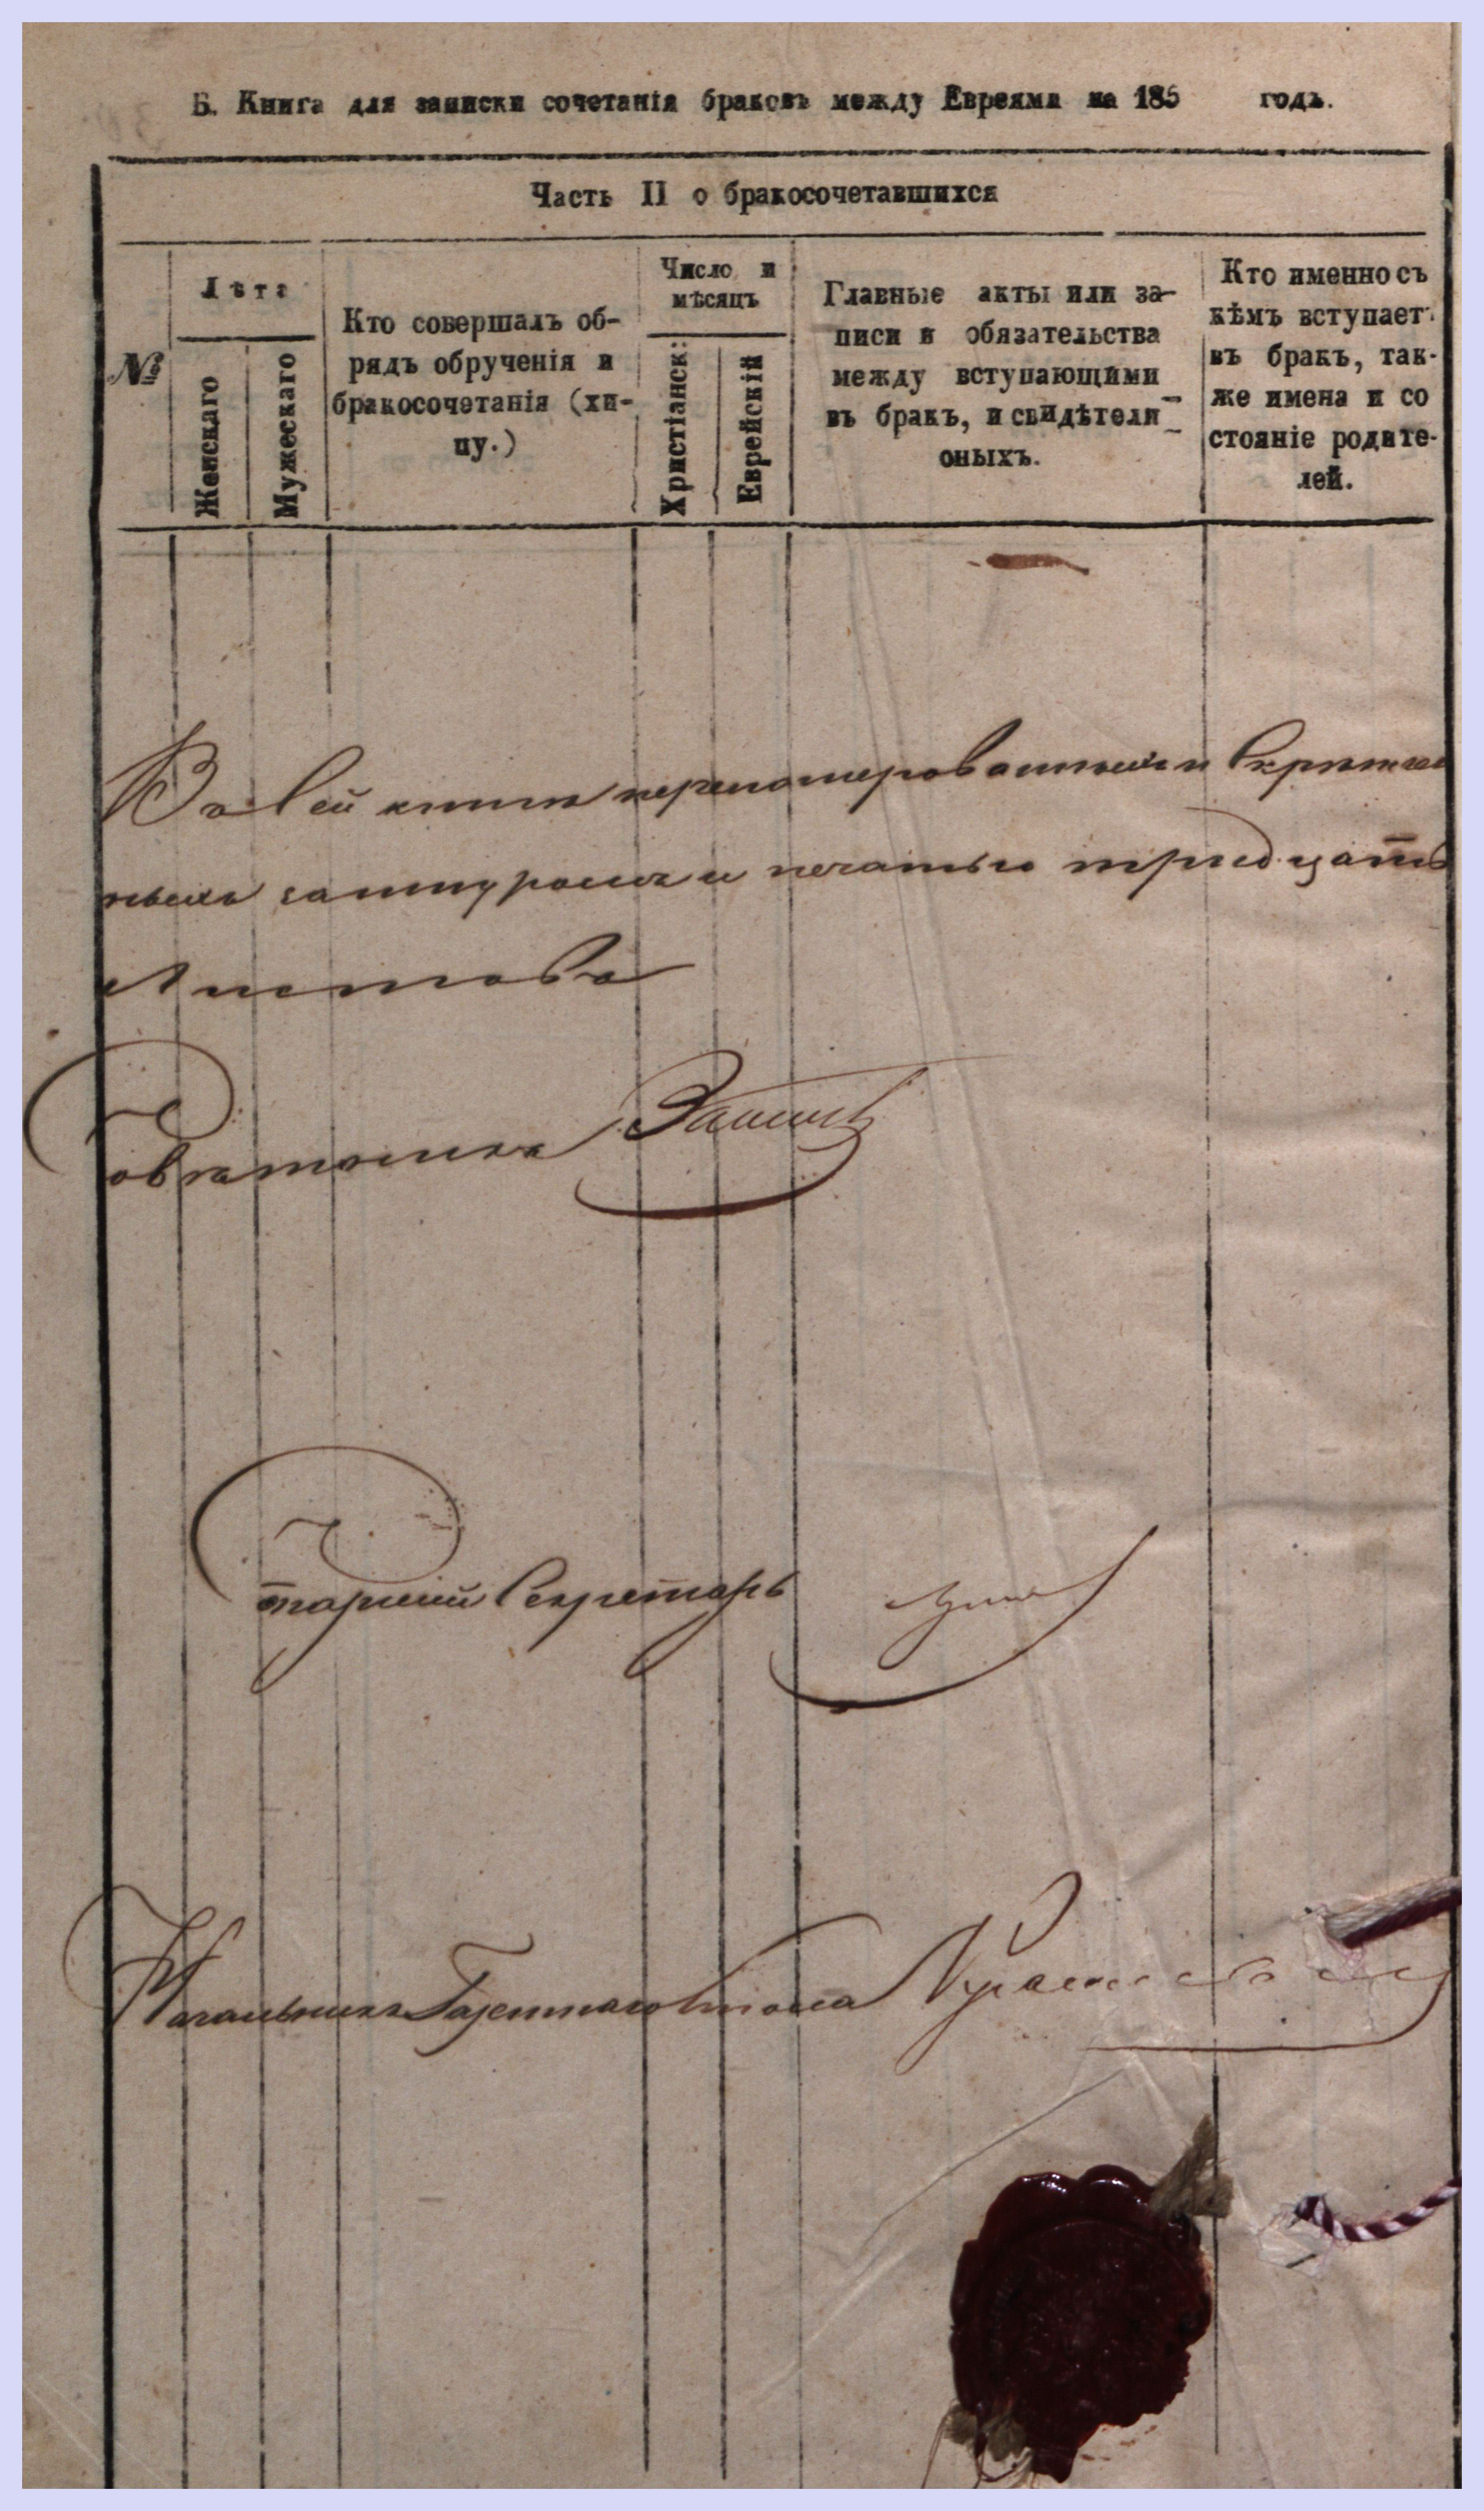 Б. Книга для записки сочетанія браковъ между Евреями на 185 годъ.
Часть II о бракосочетавшихся
№
Лѣта
Женскаго
Мужескаго
Кто совершалъ об-
рядъ обрученія и
бракосочетанія (хи-
пу.)
Число и
мѣсяцъ
Христіанск:
Еврейскій
Главные акты или за-
писи и обязательства
между вступающими
въ бракъ, и свидѣтели
оныхъ.
Кто именно съ
кѣмъ вступаетъ
въ бракъ, так-
же имена и со
стояніе родите-
лей.
Въ сей книгѣ перенумерованныхъ и скрѣплен
ныхъ за шнуромъ и печатью тридцать
Листовъ
Совѣтникъ
Старшій Секретарь
Начальник Газетнаго Стола